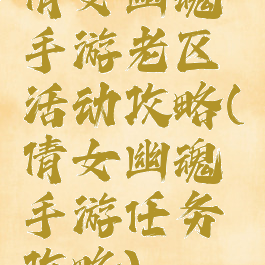 倩女幽魂
手游老区
活动攻略(
倩女幽魂
手游任务
攻略)